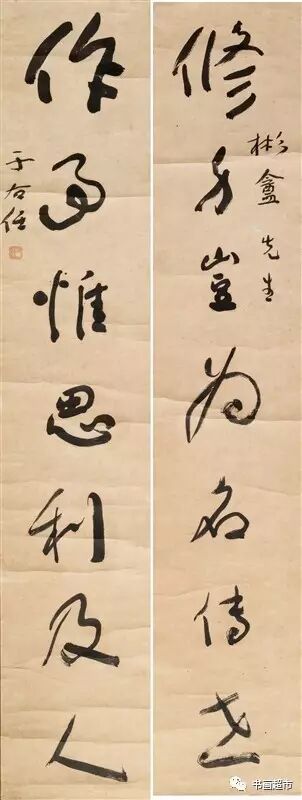 修身豈為名傳世
彬盦先生
作事惟思利及人
于右任
书画超市